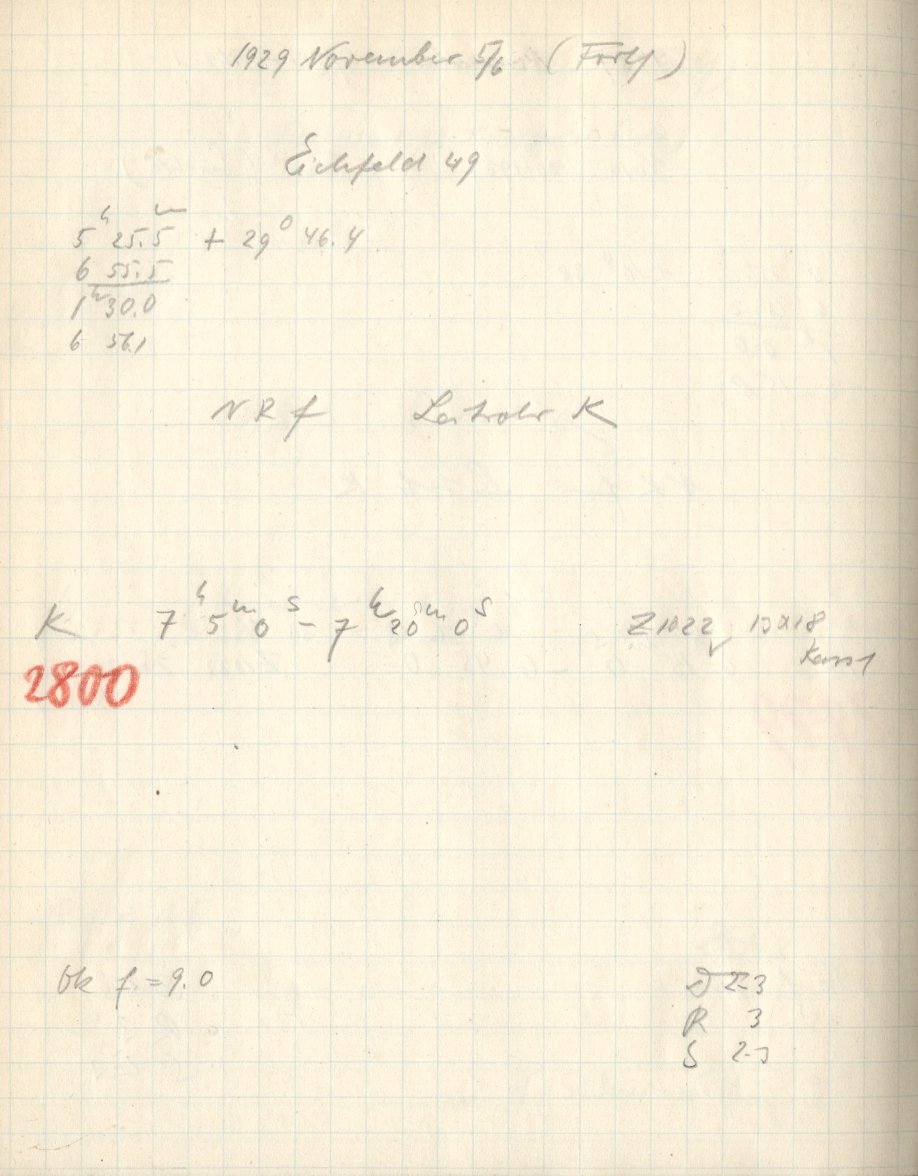 1929 November 5/6 (Forts)
Eichfeld 49
5ʰ 25.5ᵐ + 29⁰ 46.4
6 55.5
1ʰ 30.0
6 56.1
NRf Leitrohr K
K 7ʰ 5ᵐ 0ˢ - 7ʰ 20ᵐ 0ˢ Z 1022 13x18
2800
Ok f = 9.0
D 2-3
R 3
S 2-3